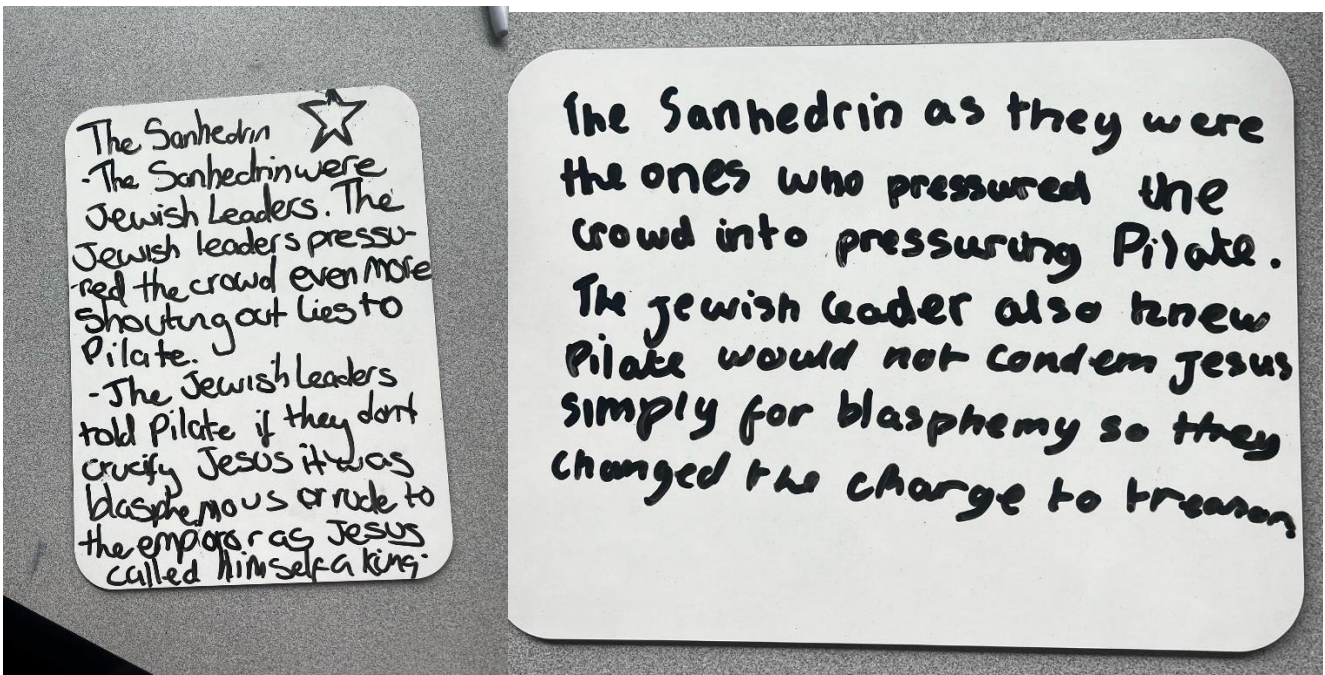 The Sanhedrin
-The Sanhedrin were
Jewish Leaders. The
Jewish leaders pressu-
-red the crowd even more
shouting out lies to
Pilate.
-The Jewish Leaders
told Pilate if they don't
crucify Jesus it was
blasphemous or rude to
the emporor as Jesus
called himself a king.
The Sanhedrin as they were
the ones who pressured the
crowd into pressuring Pilate.
The jewish leader also knew
Pilate would not condem Jesus
simply for blasphemy so they
changed the charge to treason